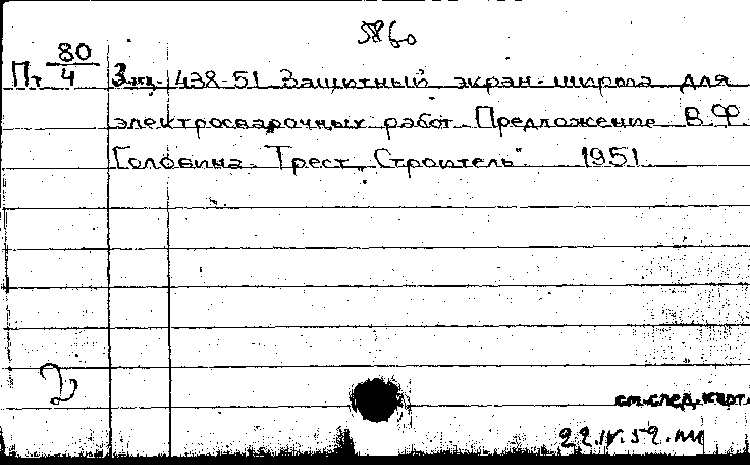 5860
Пт 80/4 438-51 Защитный экран-ширма для
электросварочных работ. Предложение В.Ф.
Головина. Трест „Строитель". 1951.
2
см.след.карт.
22.IV.52.